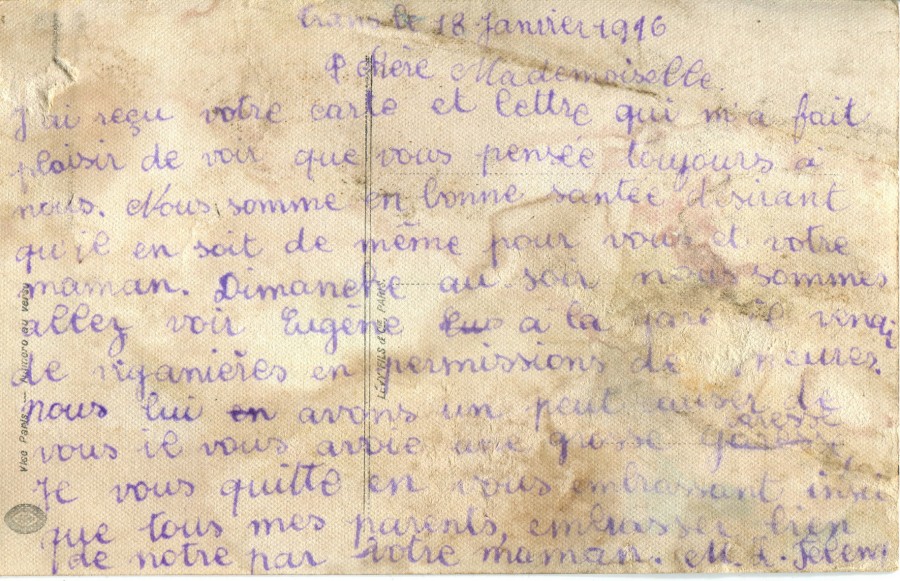 le 18 Janvier 1916
chère Mademoiselle.
J'ai reçu votre carte et lettre qui m'a fait
plaisir de voir que vous pensée toujours a
nous. Nous somme en bonne santée desirant
qu'il en soit de même pour vous et votre
maman. Dimanche au soir nous sommes
allez voir Eugène a la gare il
de en permissions de
nous lui avons un peut causer de
vous il vous avoie une grosse
Je vous quitte en vous embrassant insi
que tous mes parents, embrasser bien
de notre par votre maman. M. L.
Visa Paris — Numéro au verso
PARIS